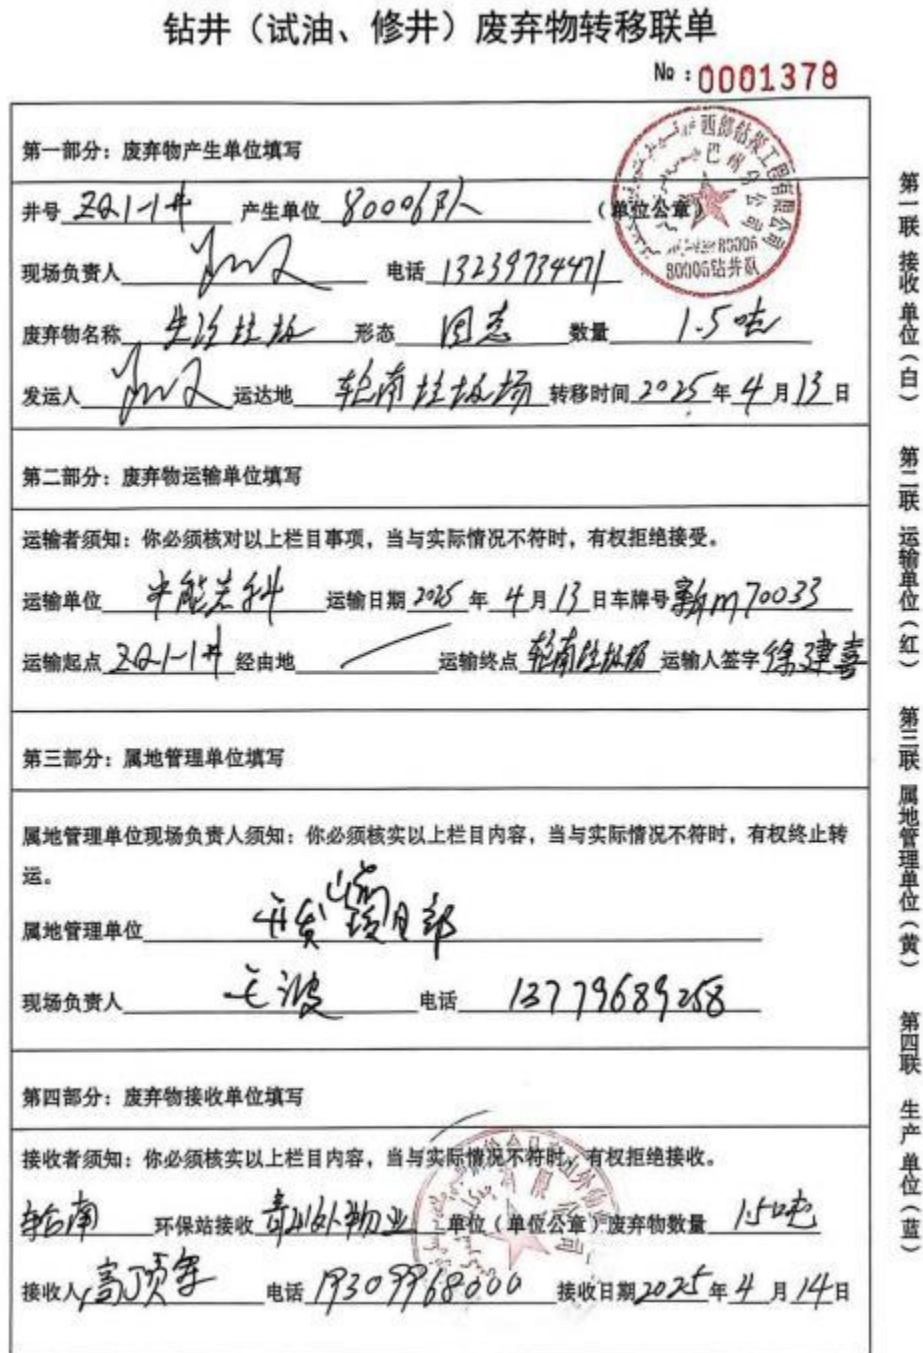 钻井（试油、修井）废弃物转移联单
№：0001378
第一部分：废弃物产生单位填写
井号 ZQ1-1井 产生单位 80006队 （单位公章）
西部钻探工程有限公司
巴州分公司
80006
80006钻井队
现场负责人 电话 13239734471
废弃物名称 生活垃圾 形态 固态 数量 1.5吨
发运人 运达地 轮南垃圾场 转移时间 2025 年 4 月 13 日
第二部分：废弃物运输单位填写
运输者须知：你必须核对以上栏目事项，当与实际情况不符时，有权拒绝接受。
运输单位 中能万科 运输日期 2025 年 4 月 13 日车牌号 新m70033
运输起点 ZQ1-1井 经由地 运输终点 轮南垃圾场 运输人签字 徐建喜
第三部分：属地管理单位填写
属地管理单位现场负责人须知：你必须核实以上栏目内容，当与实际情况不符时，有权终止转
运。
属地管理单位 开发 项目部
现场负责人 毛波 电话 13779689258
第四部分：废弃物接收单位填写
接收者须知：你必须核实以上栏目内容，当与实际情况不符时，有权拒绝接收。
轮南 环保站接收 物业 单位（单位公章）废弃物数量 1.5吨
有限公司
接收人 高顶军 电话 19309968000 接收日期 2025 年 4 月 14 日
第一联 接收单位（白）
第二联 运输单位（红）
第三联 属地管理单位（黄）
第四联 生产单位（蓝）